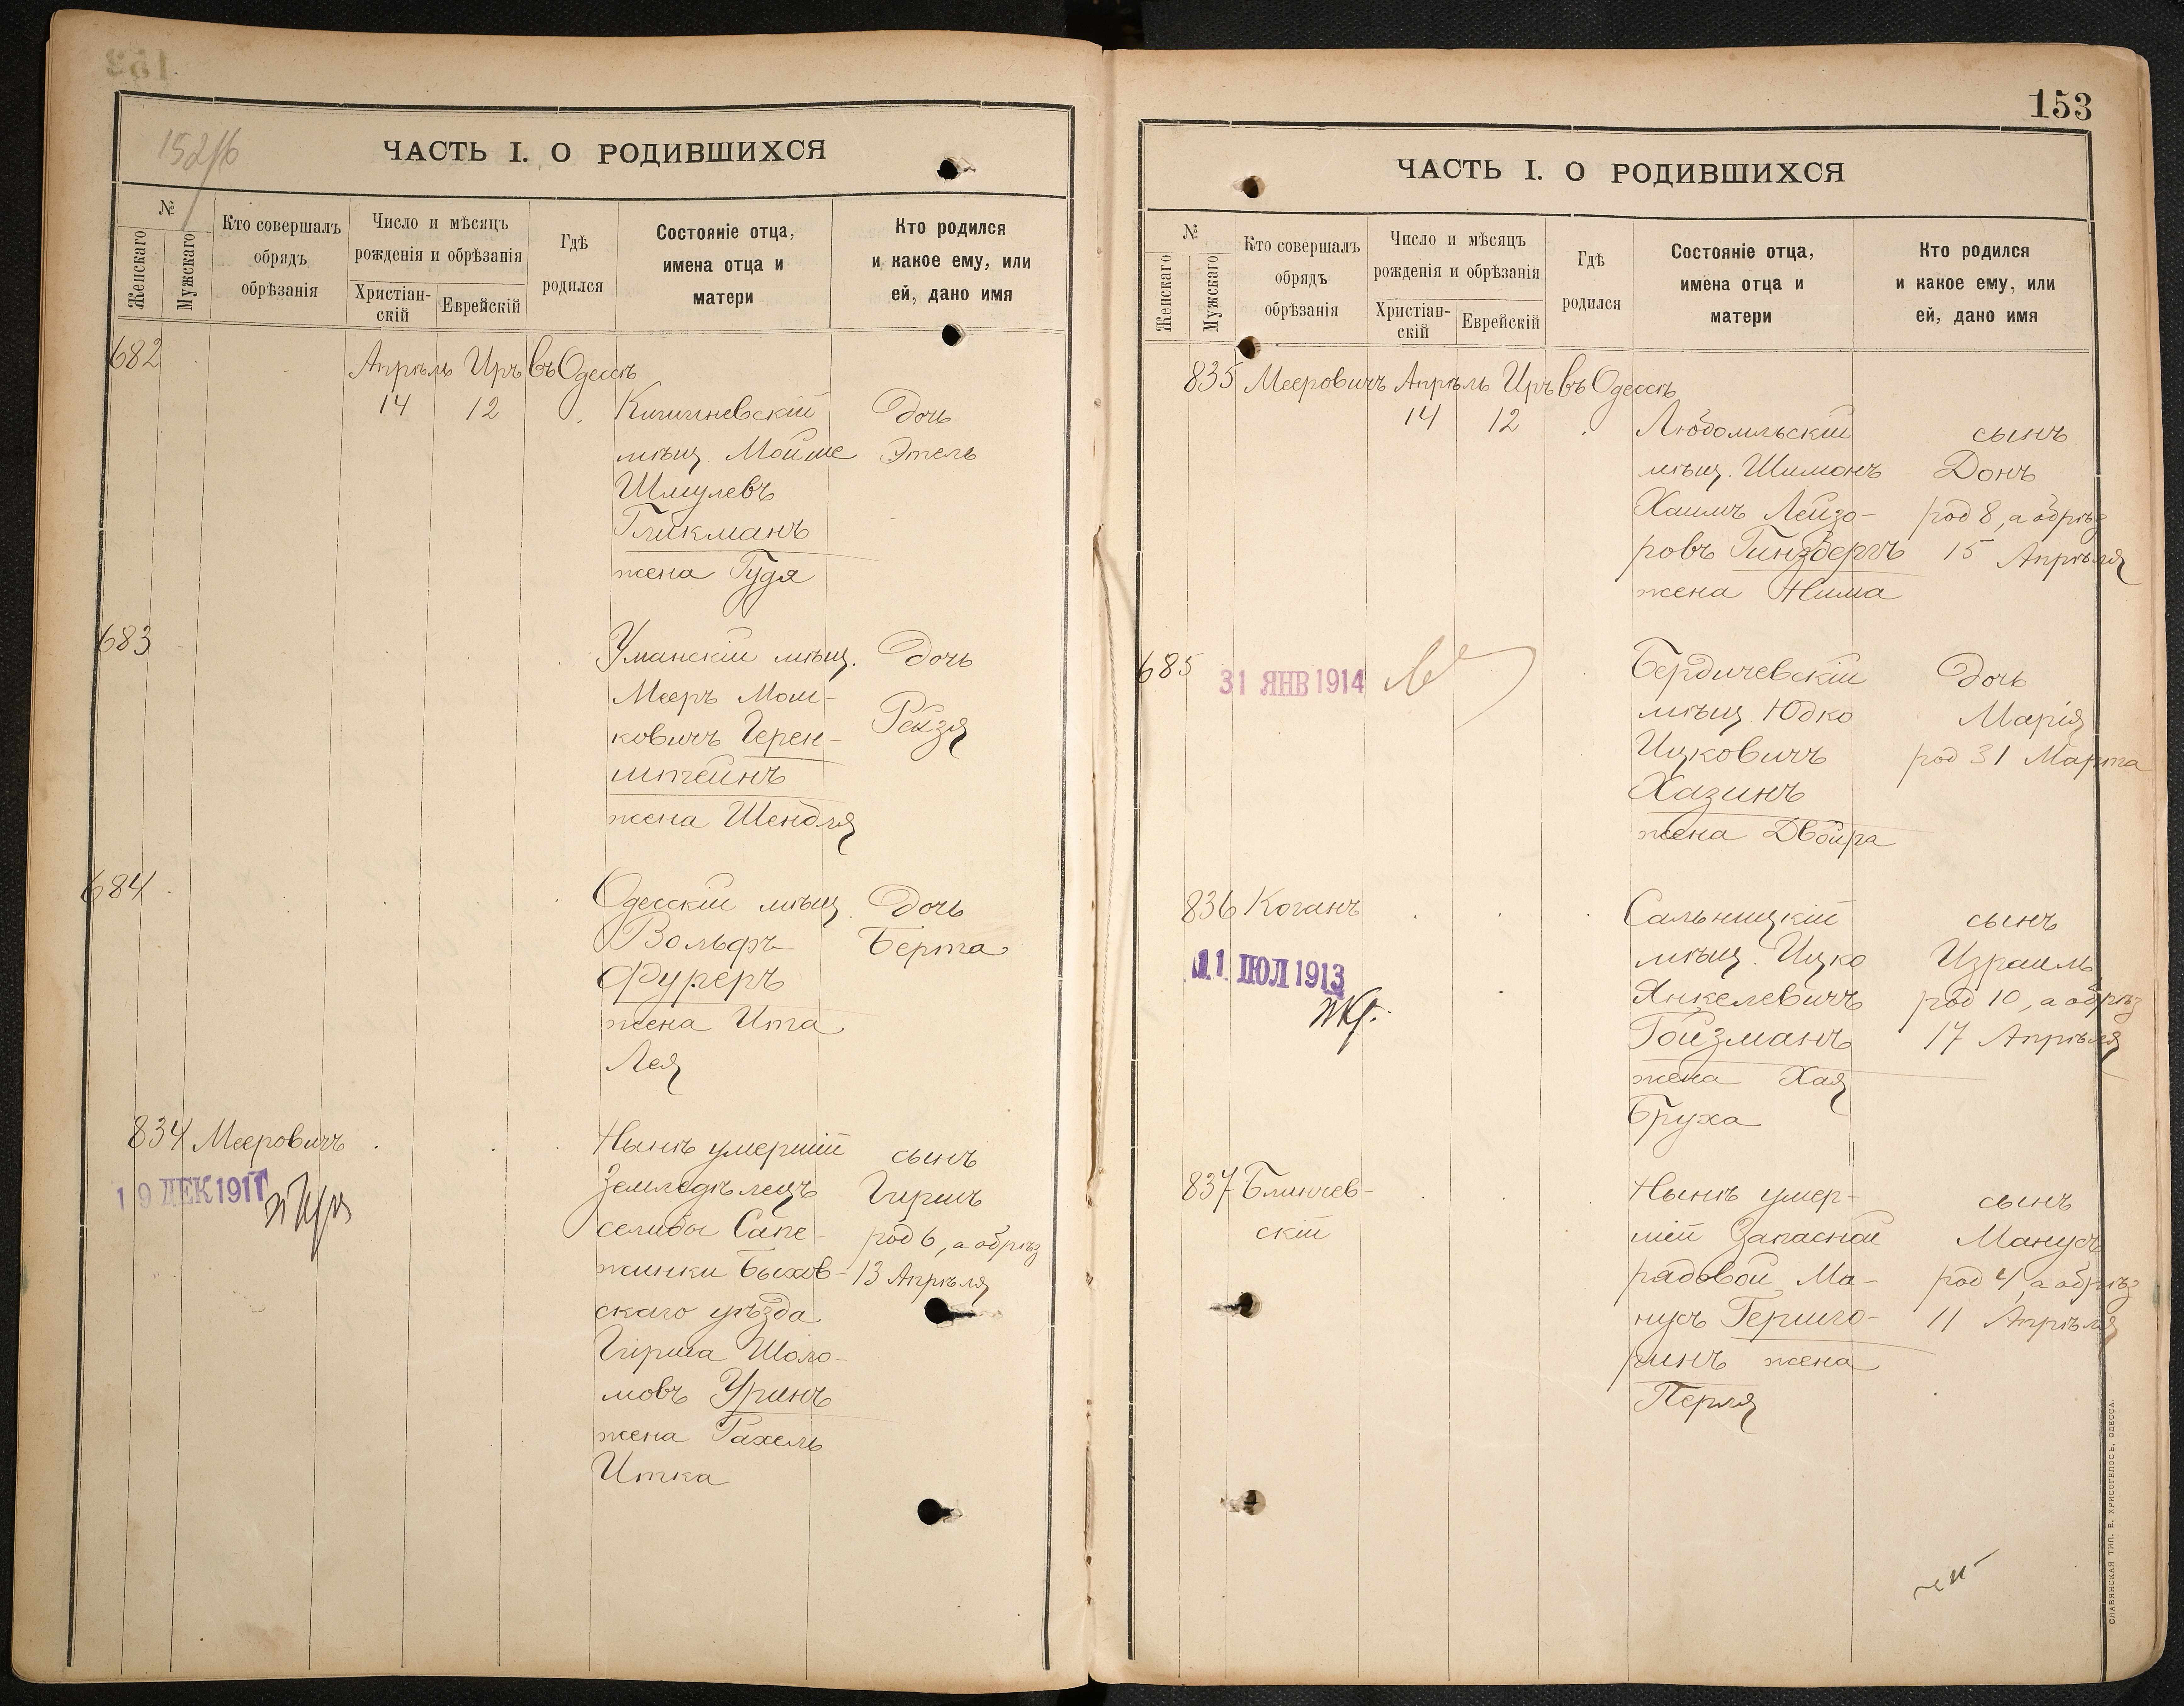 153
152/б
ЧАСТЬ I. О РОДИВШИХСЯ
№
Женскаго
Мужскаго
Кто совершалъ
обрядъ
обрѣзанія
Число и мѣсяцъ
рожденія и обрѣзанія
Христіан-
скій
Еврейскій
Гдѣ
родился
Состояніе отца,
имена отца и
матери
Кто родился
и какое ему, или
ей, дано имя
682
Апрѣль Иръ въ Одессѣ
14 12
Кишиневскій Дочь
мѣщ. Мойше Этель
Шмулевъ
Гликманъ
жена Гудя
683
Уманскій мѣщ. Дочь
Мееръ Мош- Рейзя
ковичъ Герен-
штейнъ
жена Шендля
684
Одесскій мѣщ. Дочь
Вольфъ Берта
Фуреръ
жена Ита
Лея
834 Мееровичъ
19 ДЕК 1911
Нынѣ умершій сынъ
Земледѣлецъ Гиршъ
селидбы Сапе- род 6, а обрѣз
жинки Быхов- 13 Апрѣля
скаго уѣзда
Гирша Шоло-
мовъ Уринъ
жена Рахель
Итка
153
ЧАСТЬ I. О РОДИВШИХСЯ
№
Женскаго
Мужскаго
Кто совершалъ
обрядъ
обрѣзанія
Число и мѣсяцъ
рожденія и обрѣзанія
Христіан-
скій
Еврейскій
Гдѣ
родился
Состояніе отца,
имена отца и
матери
Кто родился
и какое ему, или
ей, дано имя
835 Мееровичъ Апрѣль Иръ въ Одессѣ
14 12
Любомльскій сынъ
мѣщ. Шимонъ Донъ
Хаимъ Лейзо- род 8, а обрѣз
ровъ Гинзбергъ 15 Апрѣля
жена Нима
685
31 ЯНВ 1914
Бердичевскій Дочь
мѣщ. Юдко Марія
Ицковичъ род 31 Марта
Хазинъ
жена Двойра
836 Коганъ
11 ІЮЛ 1913
Сальницкій сынъ
мѣщ. Ицко Израиль
Янкелевичъ род 10, а обрѣз
Гойзманъ 17 Апрѣля
жена Хая
Бруха
837 Блинчев-
скій
Нынѣ умер- сынъ
шій Запасной Манусъ
рядовой Ма- род 4, а обрѣз
нусъ Гершго- 11 Апрѣля
ринъ жена
Перля
СЛАВЯНСКАЯ ТИП. Е. ХРИСОГЕЛОСЪ, ОДЕССА.